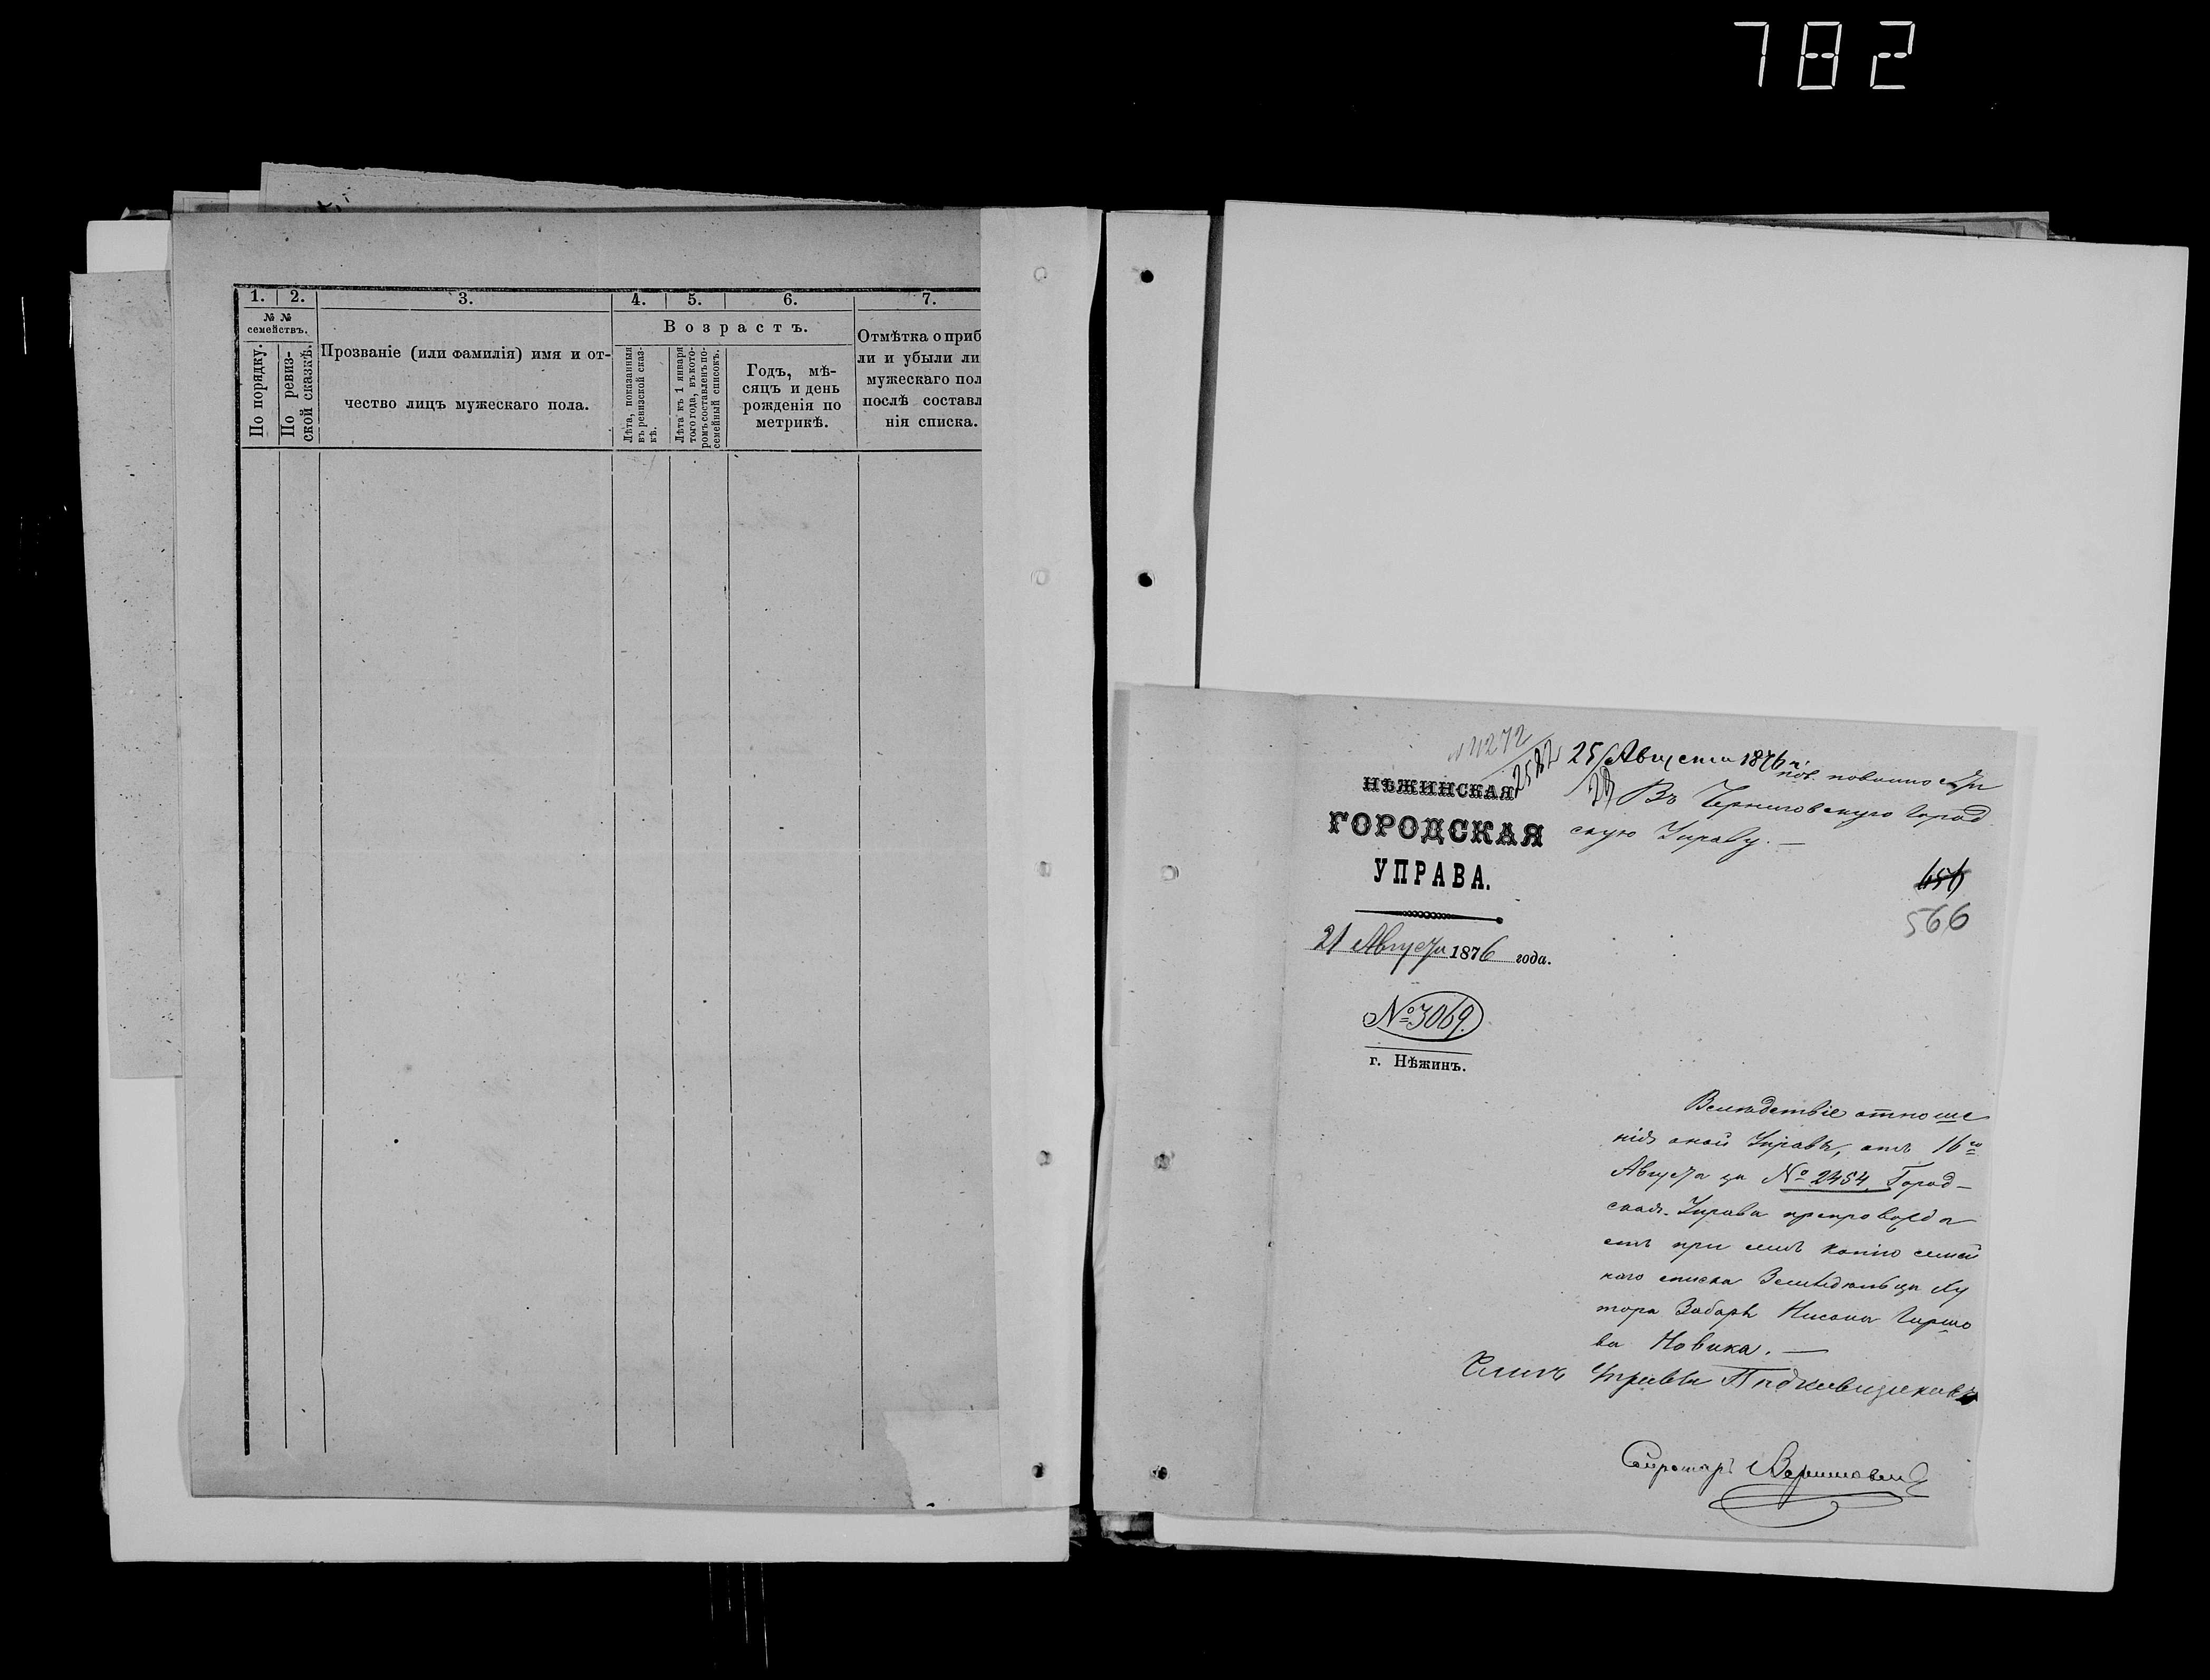 782
1. 2. 3. 4. 5. 6. 7.
№ №
семействъ.
По порядку.
По ревиз-
ской сказкѣ.
Прозваніе (или фамилія) имя и от-
чество лицъ мужескаго пола.
Возрастъ.
Лѣта, показанныя
въ ревизской сказ-
кѣ.
Лѣта къ 1 января
того года, въ кото-
ромъ составленъ по-
семейный списокъ.
Годъ, мѣ-
сяцъ и день
рожденія по
метрикѣ.
Отмѣтка о приб
ли и убыли ли
мужескаго пол
послѣ составл
нія списка.
25 Августа 1876 г.
НѢЖИНСКАЯ
ГОРОДСКАЯ
УПРАВА.
21 Августа 1876 года.
№ 3069.
г. Нѣжинъ.
пов. повинности
Въ Черниговскую Город
скую Управу. —
656
566
Вслѣдствіе отноше
нія оной Управы, отъ 16го
Августа за № 2454 Город-
ская Управа препровожда
етъ при семъ копію семей
наго списка Земледѣльца Ху
тора Забарь Нисона Гиршо
ва Новика. —
Членъ Управы
Секретарь